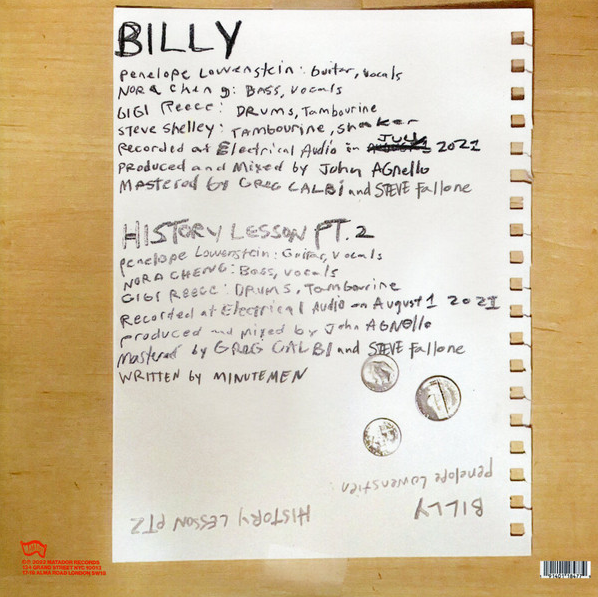 BILLY
Penelope Lowenstein: Guitar, vocals
NORA Cheng: BASS, vocals
GIGI Reece: DRUMS, Tambourine
STeve SHelley: TAMBOURINE, Shaker
JULY
Recorded at Electrical Audio in 2021
PRoduced and Mixed by John AGnello
MASTERed by GREG CALBI and STEVE Fallone
HISTORY LESSON PT. 2
Penelope Lowenstein: Guitar, vocals
NORA CHENG: Bass, vocals
GIGI REECE: DRUMS, Tambourine
Recorded at Electrical Audio on August 1 2021
produced and Mixed by John AGNello
Mastered by GREG CALBI and STEVE Fallone
WRITTEN by MINUTEMEN
BILLY
Penelope Lowenstien:
HISTORY LESSON PT2
℗© 2022 MATADOR RECORDS
134 GRAND STREET NYC 10013
17-19 ALMA ROAD LONDON SW18